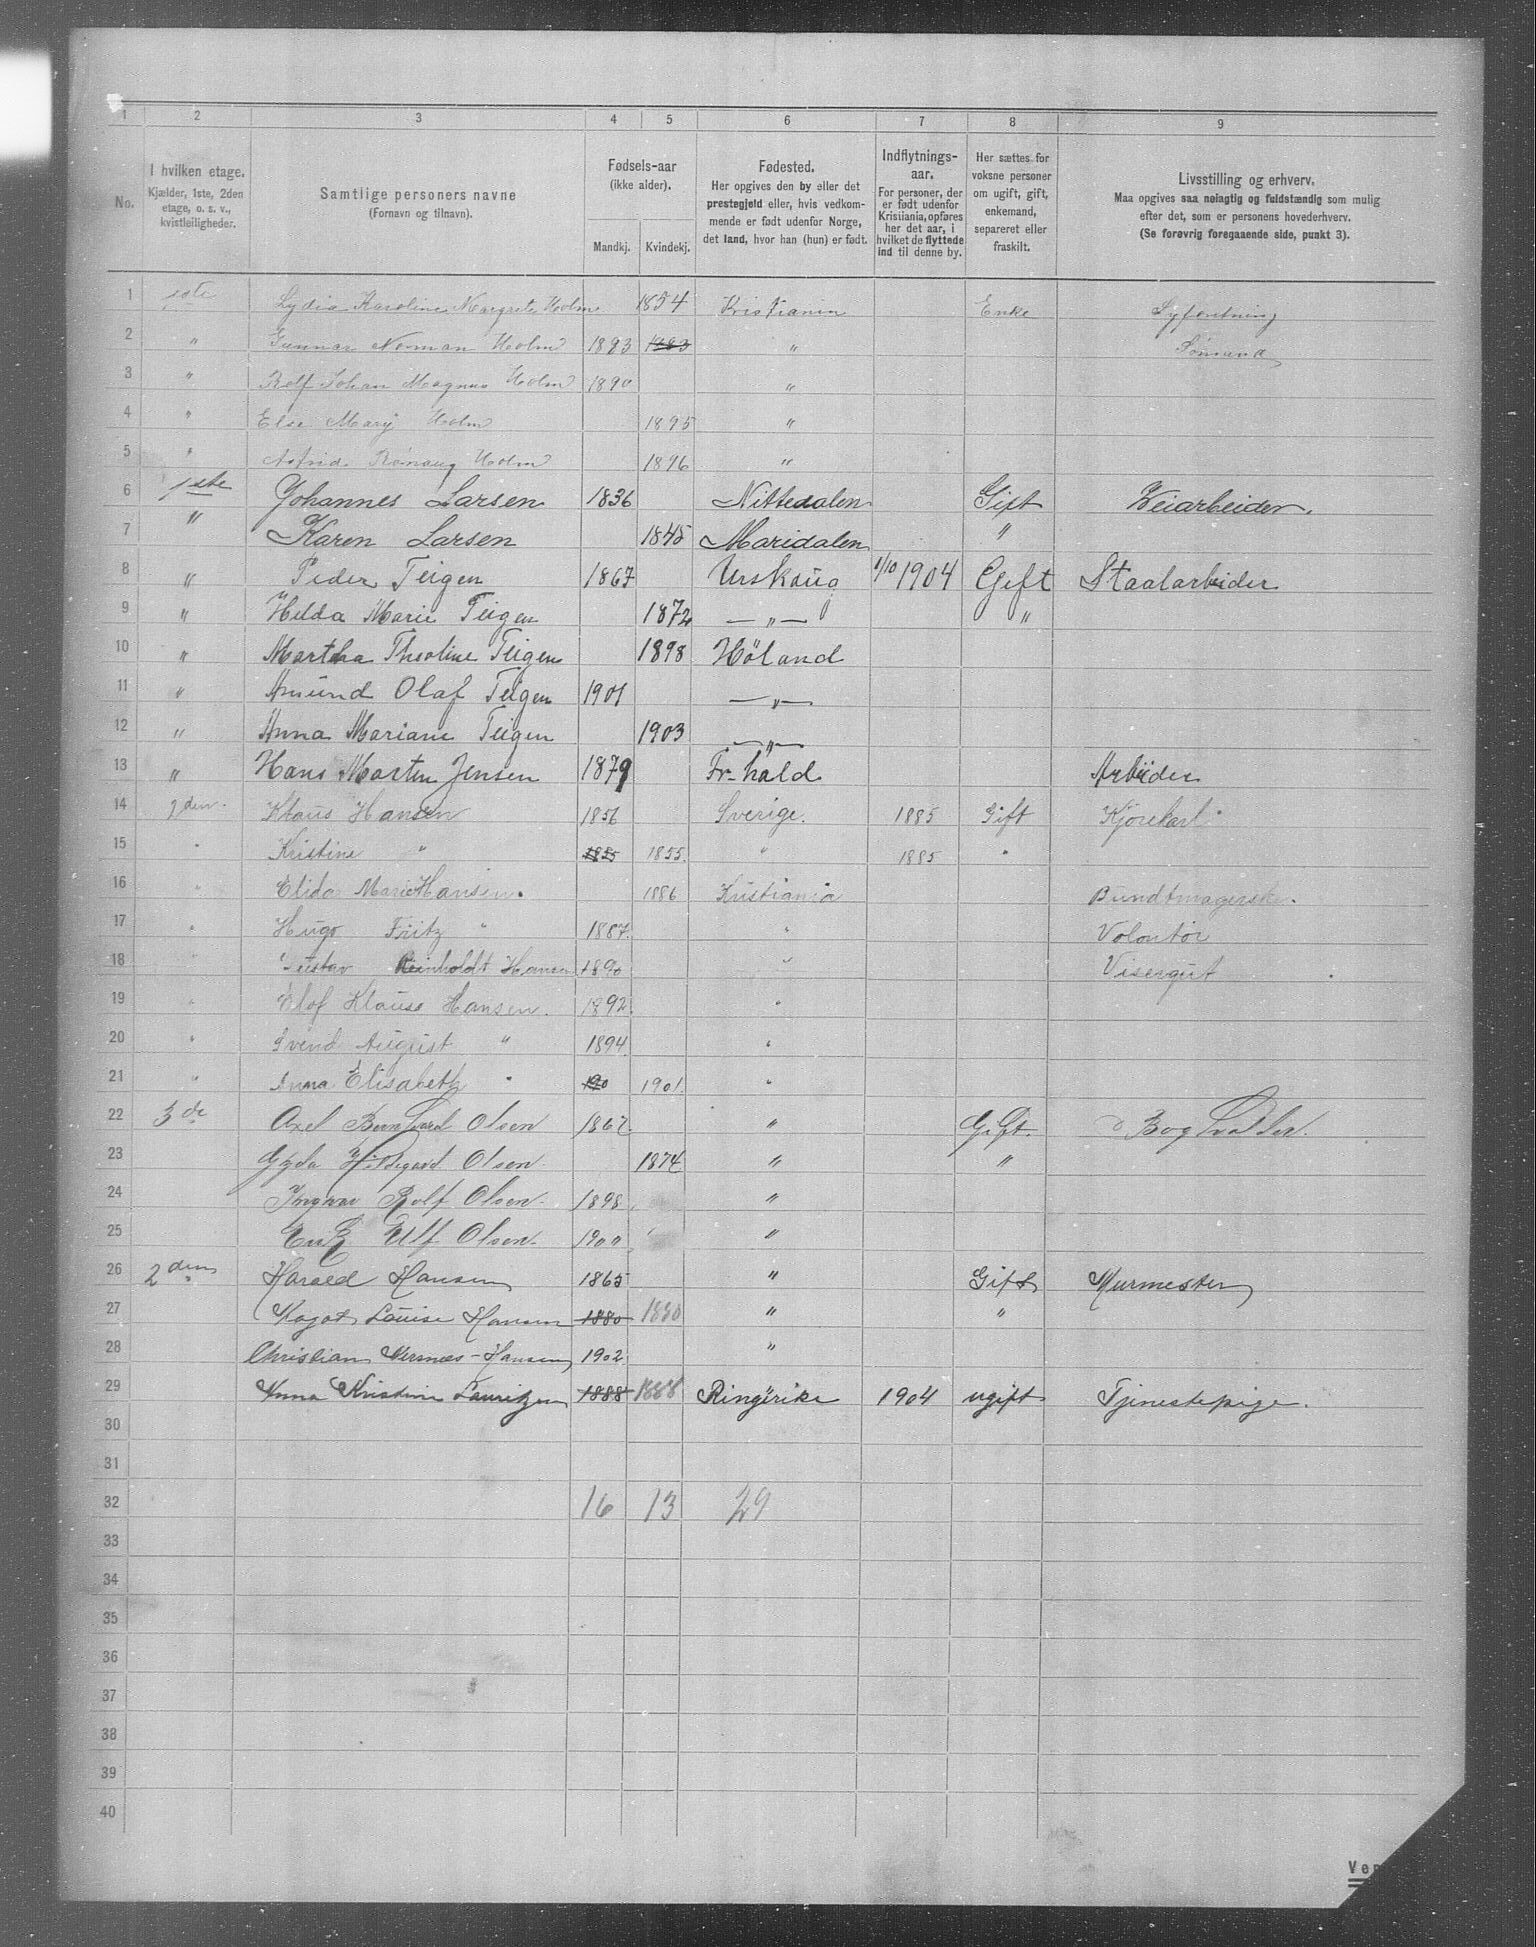 1 2 3 4 5 6 7 8 9
No.
I hvilken etage.
Kjælder, 1ste, 2den
etage, o. s. v.,
kvistleiligheder.
Samtlige personers navne
(Fornavn og tilnavn).
Fødsels-aar
(ikke alder).
Mandkj. Kvindekj.
Fødested.
Her opgives den by eller det
prestegjeld eller, hvis vedkom-
mende er født udenfor Norge,
det land, hvor han (hun) er født.
Indflytnings-
aar.
For personer, der
er født udenfor
Kristiania, opføres
her det aar, i
hvilket de flyttede
ind til denne by.
Her sættes for
voksne personer
om ugift, gift,
enkemand,
separeret eller
fraskilt.
Livsstilling og erhverv.
Maa opgives saa nøiagtig og fuldstændig som mulig
efter det, som er personens hovederhverv.
(Se forøvrig foregaaende side, punkt 3).
1 1ste Lydia Karoline Margrete Holm 1854 Kristiania Enke Syforretning
2 " Gunnar Norman Holm 1883 1883 " Sømand
3 " Rolf Johan Magnus Holm 1890 "
4 " Else Mary Holm 1895 "
5 " Astrid Rønaug Holm 1896 "
6 1ste Johannes Larsen 1836 Nittedalen Gift Veiarbeider.
7 " Karen Larsen 1845 Maridalen "
8 " Peder Teigen 1867 Urskoug 1/10 1904 Gift Staalarbeider
9 " Hilda Marie Teigen 1872 — " — "
10 " Martha Theoline Teigen 1898 Höland
11 " Amund Olaf Teigen 1901 — " —
12 " Anna Mariane Teigen 1903 — " —
13 " Hans Morten Jensen 1879 Fr-hald Arbeider
14 2den. Klaus Hansen 1856 Sverige. 1885 Gift Kjørekarl
15 " Kristine " 1855 1855. " 1885 "
16 " Elida Marie Hansen. 1886 Kristiania Bundtmagerske.
17 " Hugo Fritz " 1887. " Volontør
18 " Gustav Reinholdt Hansen 1890 " Visergut
19 " Olof Klauss Hansen. 1892. "
20 " Svend August " 1894. "
21 " Anna Elisabeth " 190 1901. "
22 3de Axel Bernhard Olsen 1867. " Gift. Bogholder.
23 Gyda Hildegard Olsen. 1874 " "
24 Ingvar Rolf Olsen. 1898. "
25 Erik Ulf Olsen. 1900 "
26 2den Harald Hansen 1865 " Gift Murmester
27 Magot Louise Hansen 1880 1880 " "
28 Christian Hansen 1902 "
29 Anna Kristine Lauritzen 1888 1888 Ringerike 1904 ugift Tjenestepige.
30
31
32 16 13 29
33
34
35
36
37
38
39
40
Ven